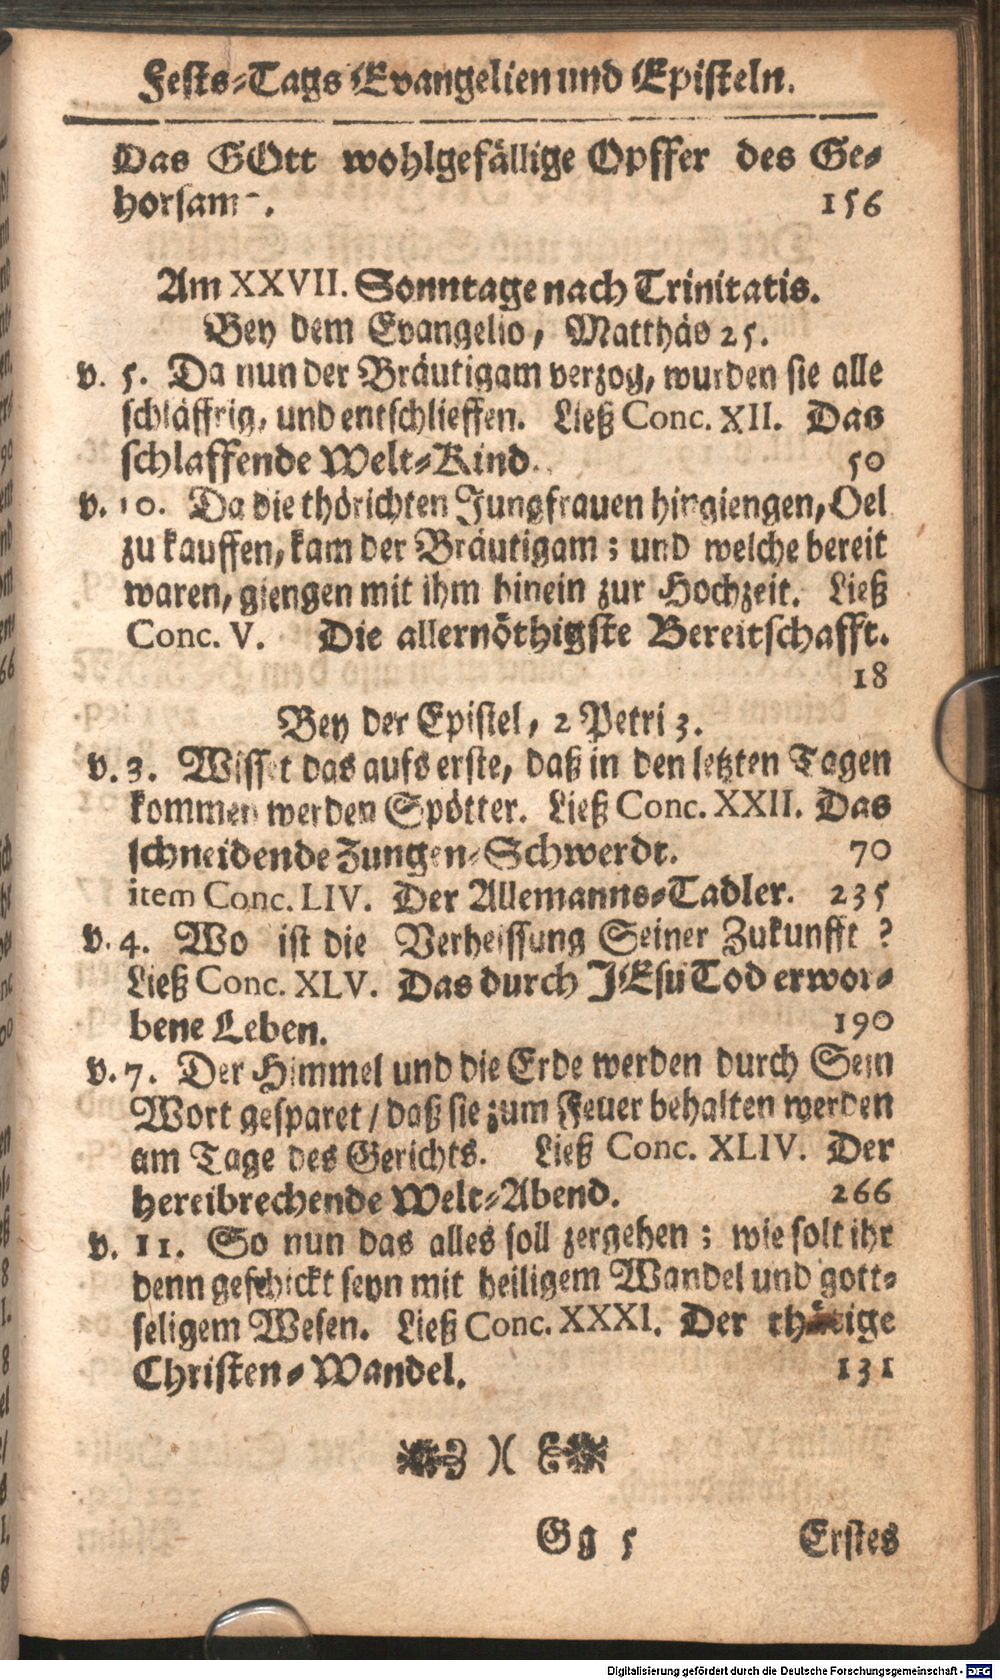 Fests-Tags Evangelien und Episteln.
Das GOtt wohlgefällige Opffer des Ge-
horsams. 156
Am XXVII. Sonntage nach Trinitatis.
Bey dem Evangelio, Matthäs 25.
v. 5. Da nun der Bräutigam verzog, wurden sie alle
schläffrig, und entschlieffen. Ließ Conc. XII. Das
schlaffende Welt-Kind. 50
v. 10. Da die thörichten Jungfrauen hingiengen, Oel
zu kauffen, kam der Bräutigam; und welche bereit
waren, giengen mit ihm hinein zur Hochzeit. Ließ
Conc. V. Die allernöthigste Bereitschafft.
18
Bey der Epistel, 2 Petri 3.
v. 3. Wisset das aufs erste, daß in den letzten Tagen
kommen werden Spötter. Ließ Conc. XXII. Das
schneidende Zungen-Schwerdt. 70
item Conc. LIV. Der Allemanns-Tadler. 235
v. 4. Wo ist die Verheissung Seiner Zukunfft?
Ließ Conc. XLV. Das durch JEsu Tod erwor-
bene Leben. 190
v. 7. Der Himmel und die Erde werden durch Sein
Wort gesparet / daß sie zum Feuer behalten werden
am Tage des Gerichts. Ließ Conc. XLIV. Der
hereibrechende Welt-Abend. 266
v. 11. So nun das alles soll zergehen; wie solt ihr
denn geschickt seyn mit heiligem Wandel und gott-
seligem Wesen. Ließ Conc. XXXI. Der thätige
Christen-Wandel. 131
Gg 5 Erstes
Digitalisierung gefördert durch die Deutsche Forschungsgemeinschaft - DFG